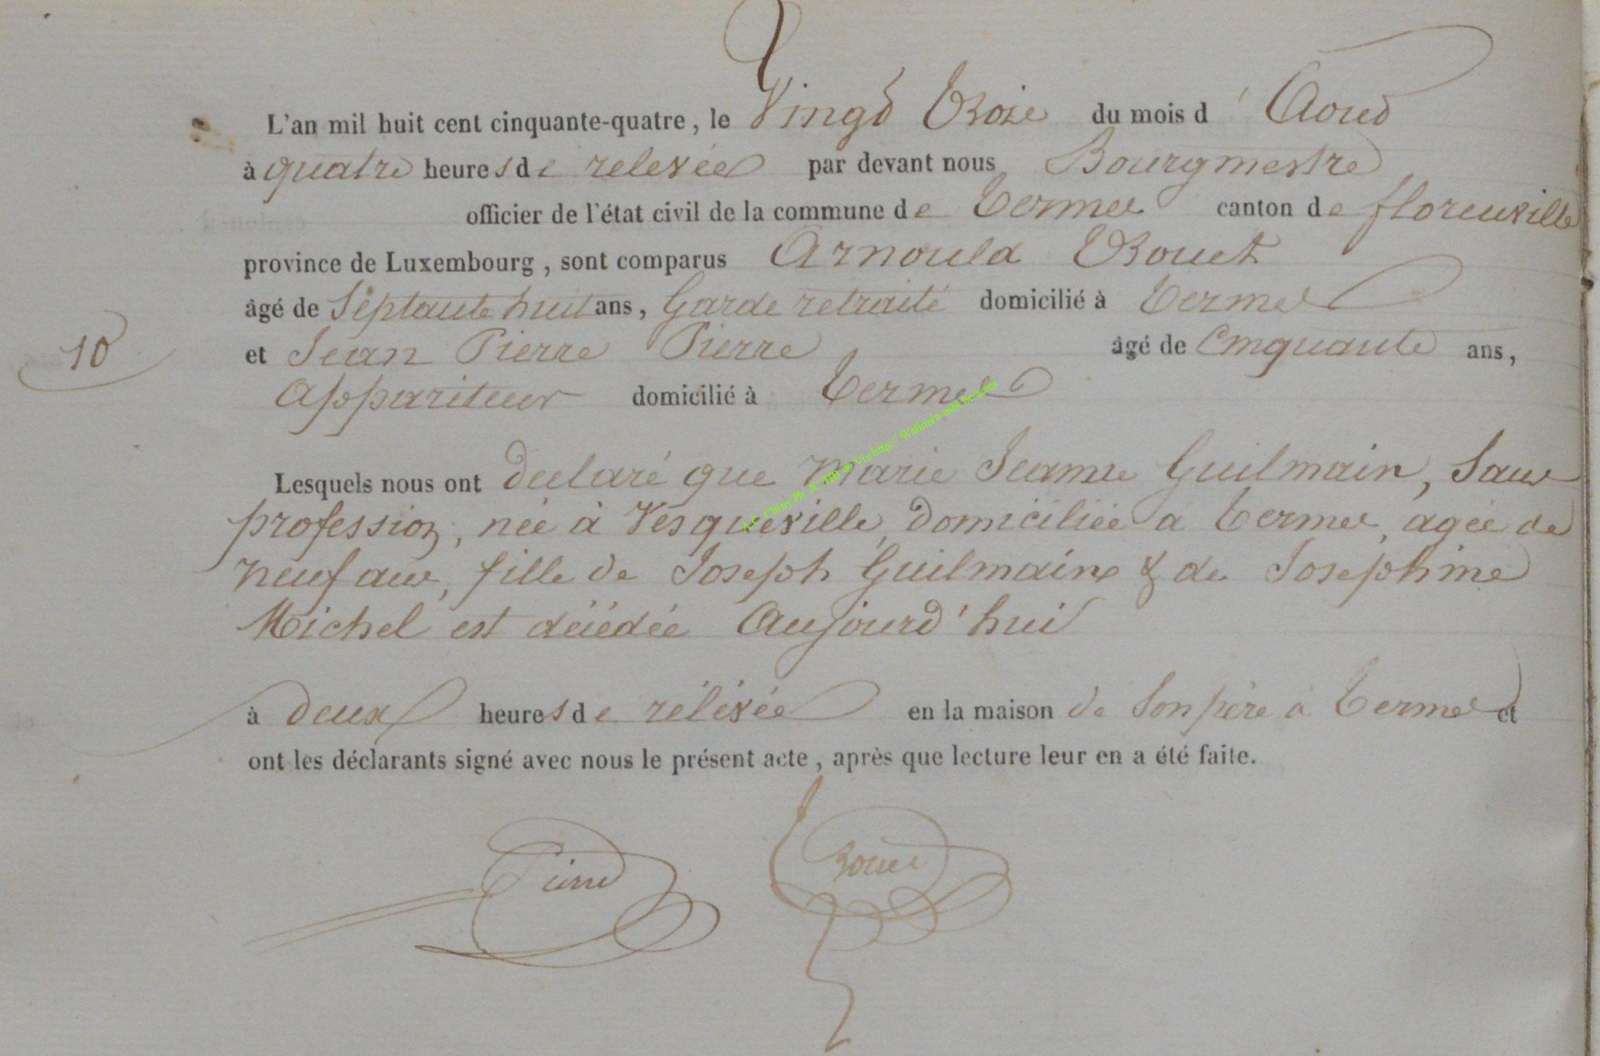 L'an mil huit cent cinquante-quatre, le Vingt Trois du mois d' Aout
à quatre heures de relevée par devant nous Bourgmestre
officier de l'état civil de la commune de Termes canton de florenville
province de Luxembourg, sont comparus Arnould Rouet
âgé de Septante huit ans, Garde retraité domicilié à Termes
10
et Jean Pierre Pierre âgé de Cinquante ans,
Appariteur domicilié à Termes
Lesquels nous ont déclaré que Marie Jeanne Guilmain, Sans
profession, née à Vesqueville, Domiciliée a Termes, agée de
neuf ans, fille de Joseph Guilmain & de Josephine
Michel est décédée Aujourd'hui
à deux heures de rélévée en la maison de Son père à Termes et
ont les déclarants signé avec nous le présent acte, après que lecture leur en a été faite.
Pierre Rouet